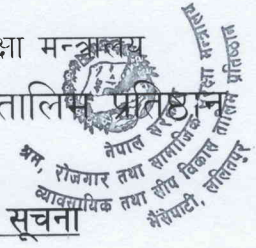 क्षा मन्त्रालय
तालिम प्रतिष्ठान
नेपाल सर
श्रम, रोजगार तथा सामाजिक सुरक्षा मन्त्रालय
व्यावसायिक तथा सीप विकास तालिम प्रतिष्ठान
भैंसेपाटी, ललितपुर
सूचना